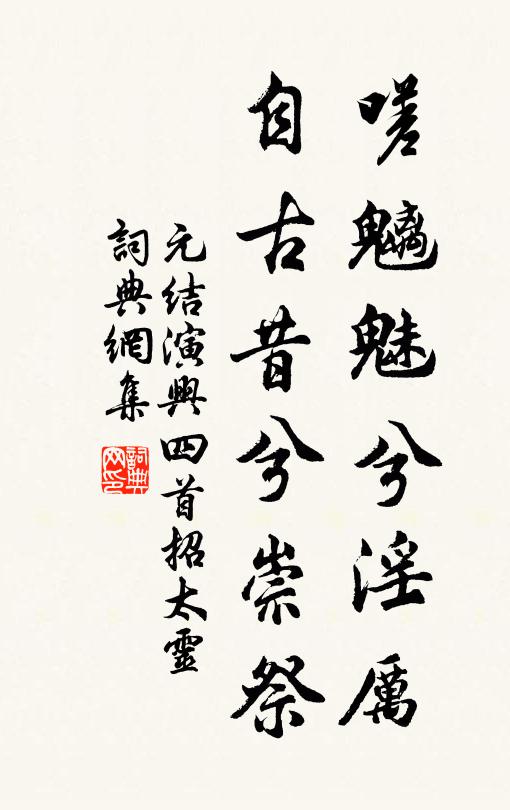 嗟魑魅兮淫厲
自古昔兮崇祭
元結演興四首招太靈
詞典網集
詞典
网印